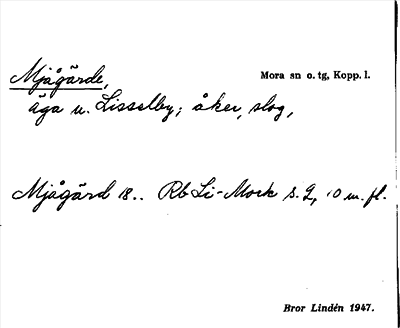 Mjågärde, Mora sn o. tg, Kopp. l.
äga u. Lisselby; åker, slog,
Mjågärd 18.. Rb Li-Mork s. 2, 10 m. fl.
Bror Lindén 1947.